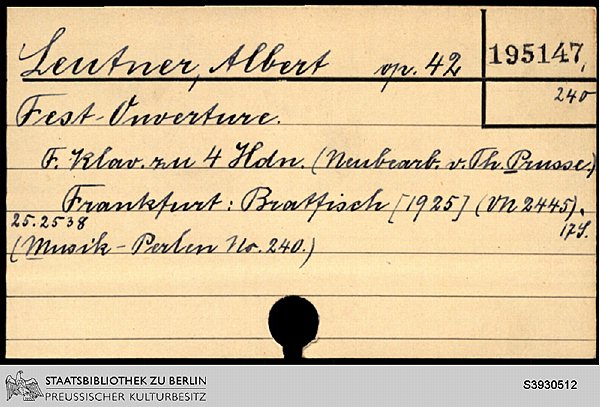 Leutner, Albert op. 42 195147,
240
Fest-Ouverture.
F. Klav. zu 4 Hdn. (Neubearb. v. Th. Prusse.)
Frankfurt: Bratfisch [1925] (VN 2445).
25.2538 17 S.
(Musik-Perlen No. 240.)
STAATSBIBLIOTHEK ZU BERLIN
PREUSSISCHER KULTURBESITZ
S3930512